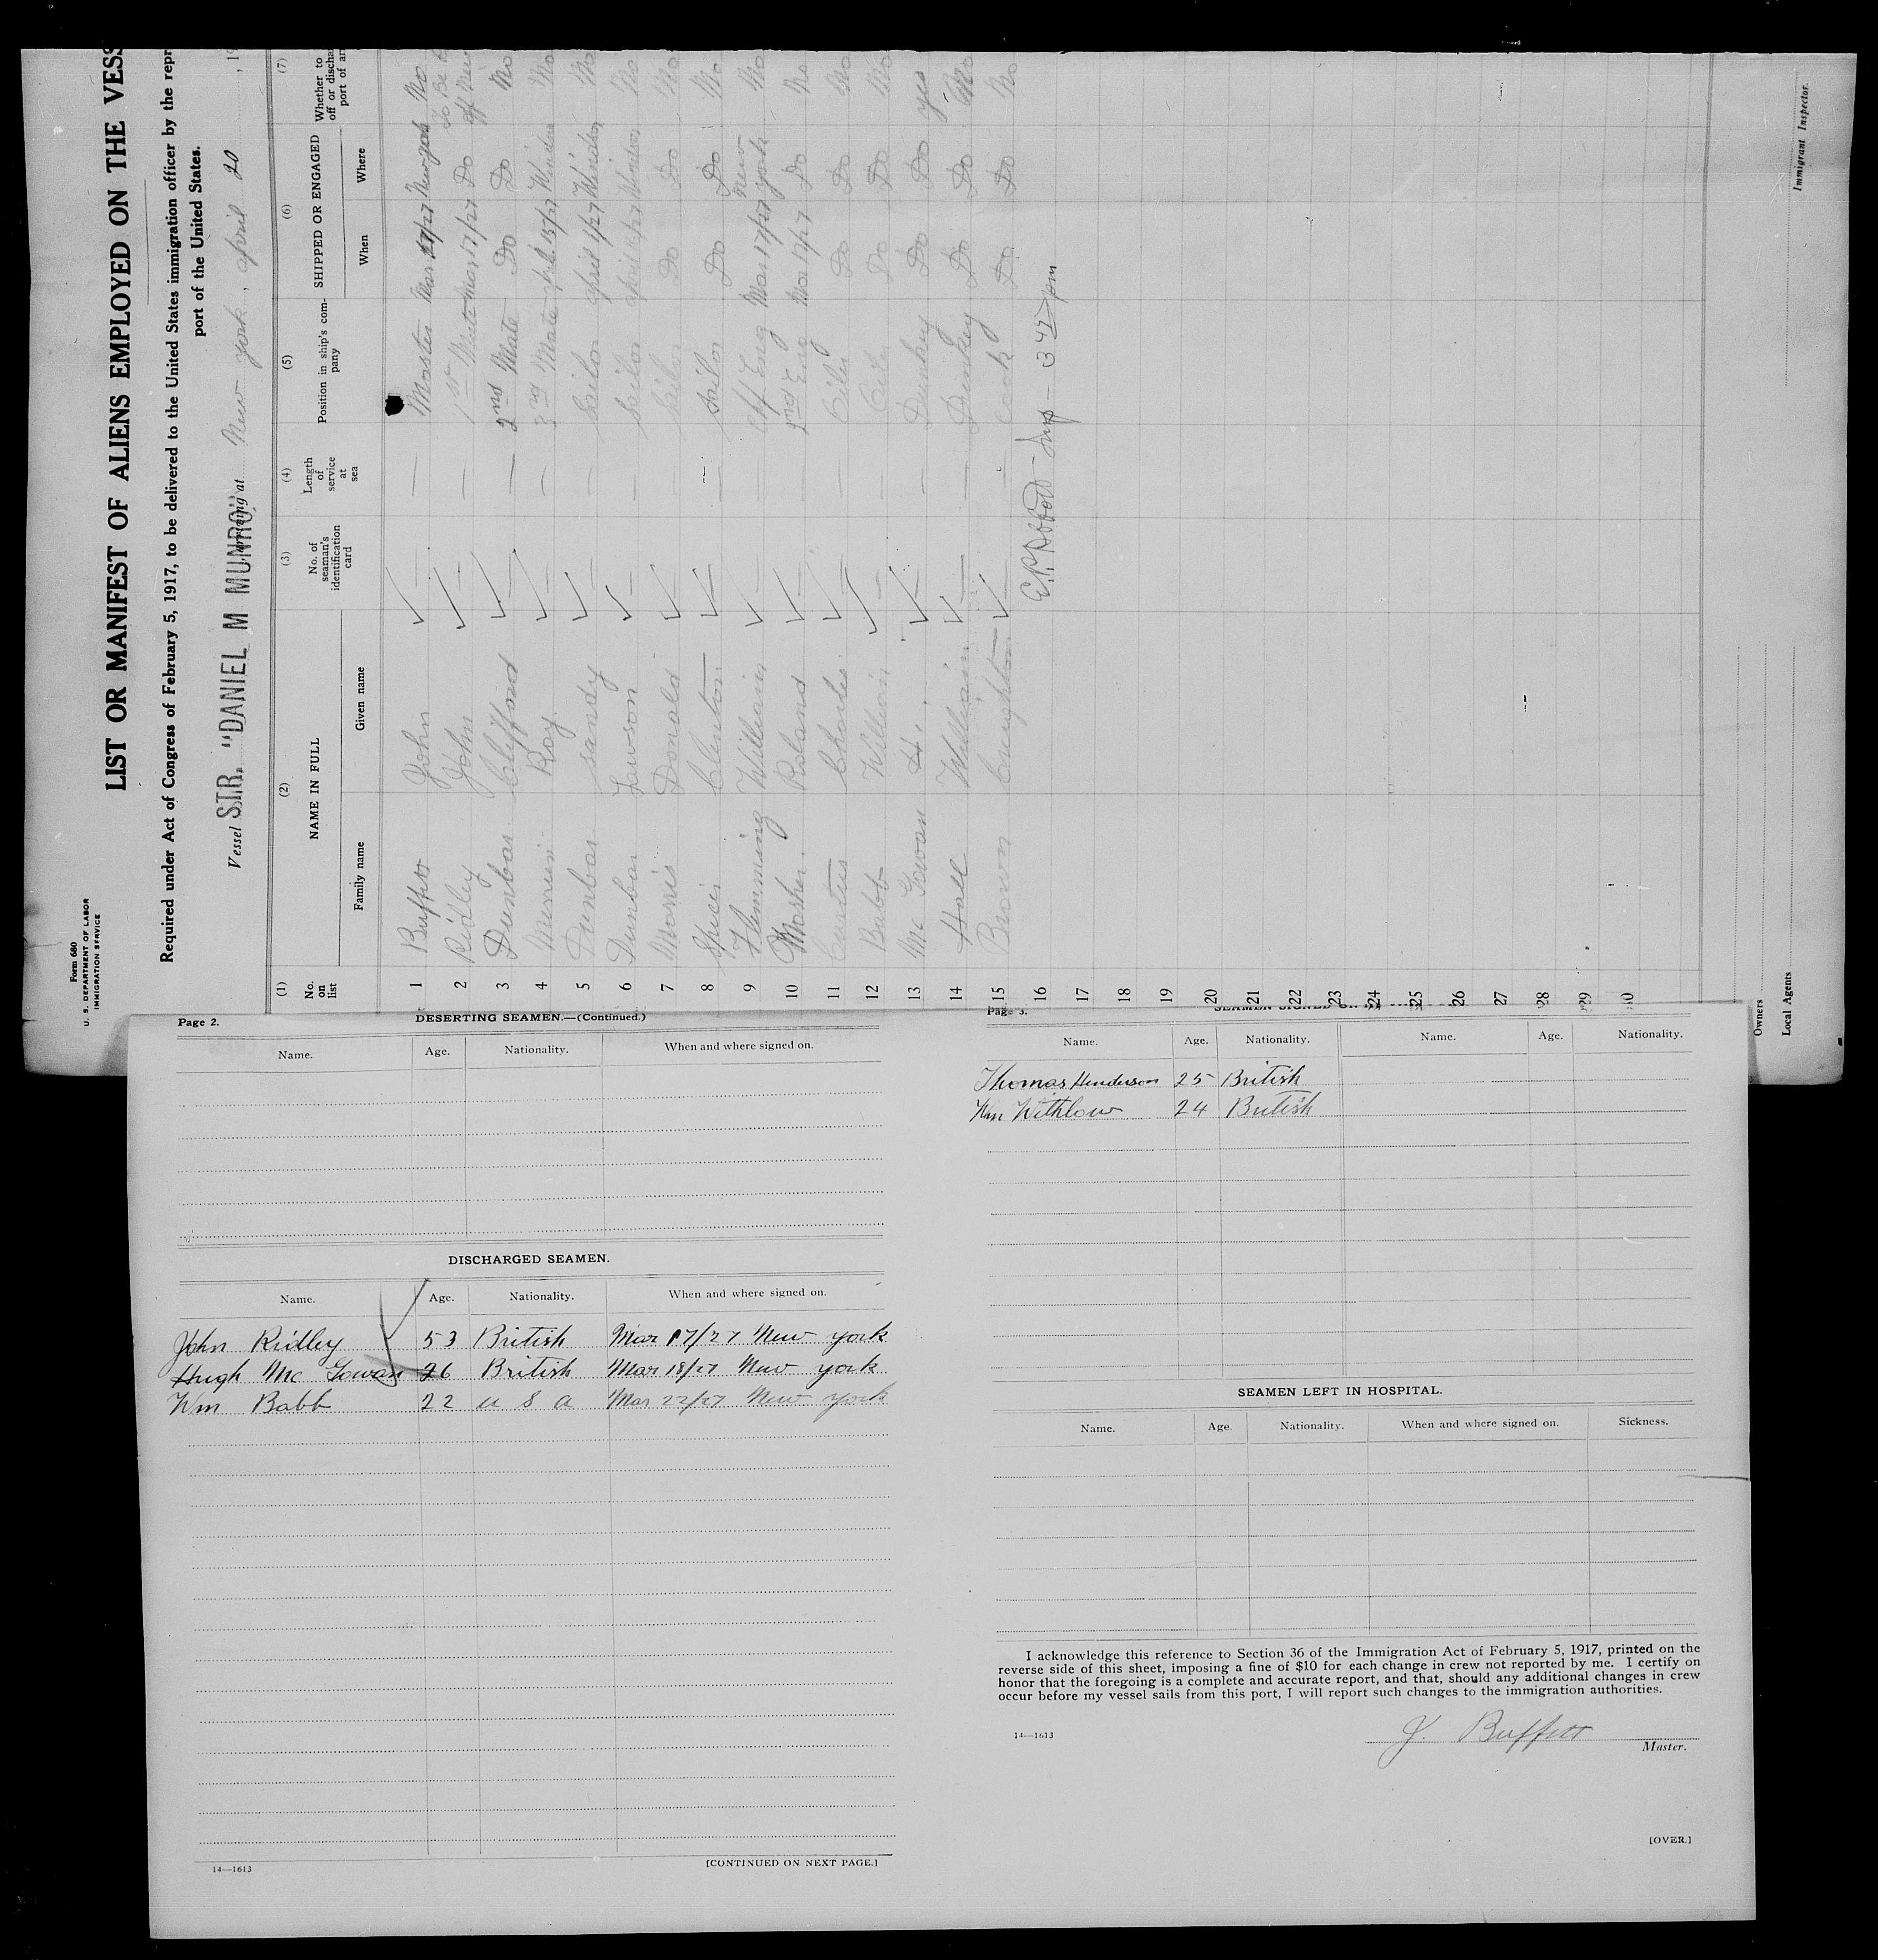 Form 680
U. S. DEPARTMENT OF LABOR
IMMIGRATION SERVICE
LIST OR MANIFEST OF ALIENS EMPLOYED ON THE VESS
Required under Act of Congress of February 5, 1917, to be delivered to the United States immigration officer by the repr
port of the United States.
Vessel STR. "DANIEL M MUNRO" arriving at New york, april 20, 19
(1) (2) (3) (4) (5) (6) (7)
No. on list NAME IN FULL No. of seaman's identification card Length of service at sea Position in ship's company SHIPPED OR ENGAGED Whether to off or discha port of ar
Family name Given name When Where
1 Buffett John — Master Mar 17/27 New york No
2 Ridley John — 1st Mate Mar 17/27 Do To Be off
3 Dunbar Clifford — 2nd Mate Do Do No
4 Roy — 2nd Mate april 13/27 Windsor No
5 Dunbar Sandy — Sailor april 1/27 Windsor No
6 Dunbar Lawson — Sailor april 1/27 Windsor No
7 Morris Donald Sailor Do Do No
8 Spicer Clenton — Sailor Do Do No
9 Flemming William Chf Eng Mar 17/27 New york No
10 Mosher Roland 2nd Eng Mar 17/27 Do No
11 Curtus Charles — Oiler Do Do No
12 Babb William — Oiler Do Do No
13 Mc Gowan H. — Dunkey Do Do yes
14 Hall William — Dunkey Do Do No
15 Brown Creighton — Cook Do Do No
16 E.P. Abbott - Insp - 3 45 pm
17
18
19
20
21
22
23
24
25
26
27
28
29
30
Owners
Local Agents
Immigrant Inspector.
Page 2.
DESERTING SEAMEN.—(Continued.)
Name. Age. Nationality. When and where signed on.
DISCHARGED SEAMEN.
Name. Age. Nationality. When and where signed on.
John Ridley 53 British Mar 17/27 New york
Hugh Mc Gowan 26 British Mar 18/27 New york
Wm Babb 22 u s a Mar 22/27 New york
14—1613
[CONTINUED ON NEXT PAGE.]
Page 3.
SEAMEN SIGNED ON
Name. Age. Nationality. Name. Age. Nationality.
Thomas Henderson 25 British
Wm Withlow 24 British
SEAMEN LEFT IN HOSPITAL.
Name. Age. Nationality. When and where signed on. Sickness.
I acknowledge this reference to Section 36 of the Immigration Act of February 5, 1917, printed on the
reverse side of this sheet, imposing a fine of $10 for each change in crew not reported by me. I certify on
honor that the foregoing is a complete and accurate report, and that, should any additional changes in crew
occur before my vessel sails from this port, I will report such changes to the immigration authorities.
14—1613
J. Buffett
Master.
[OVER.]